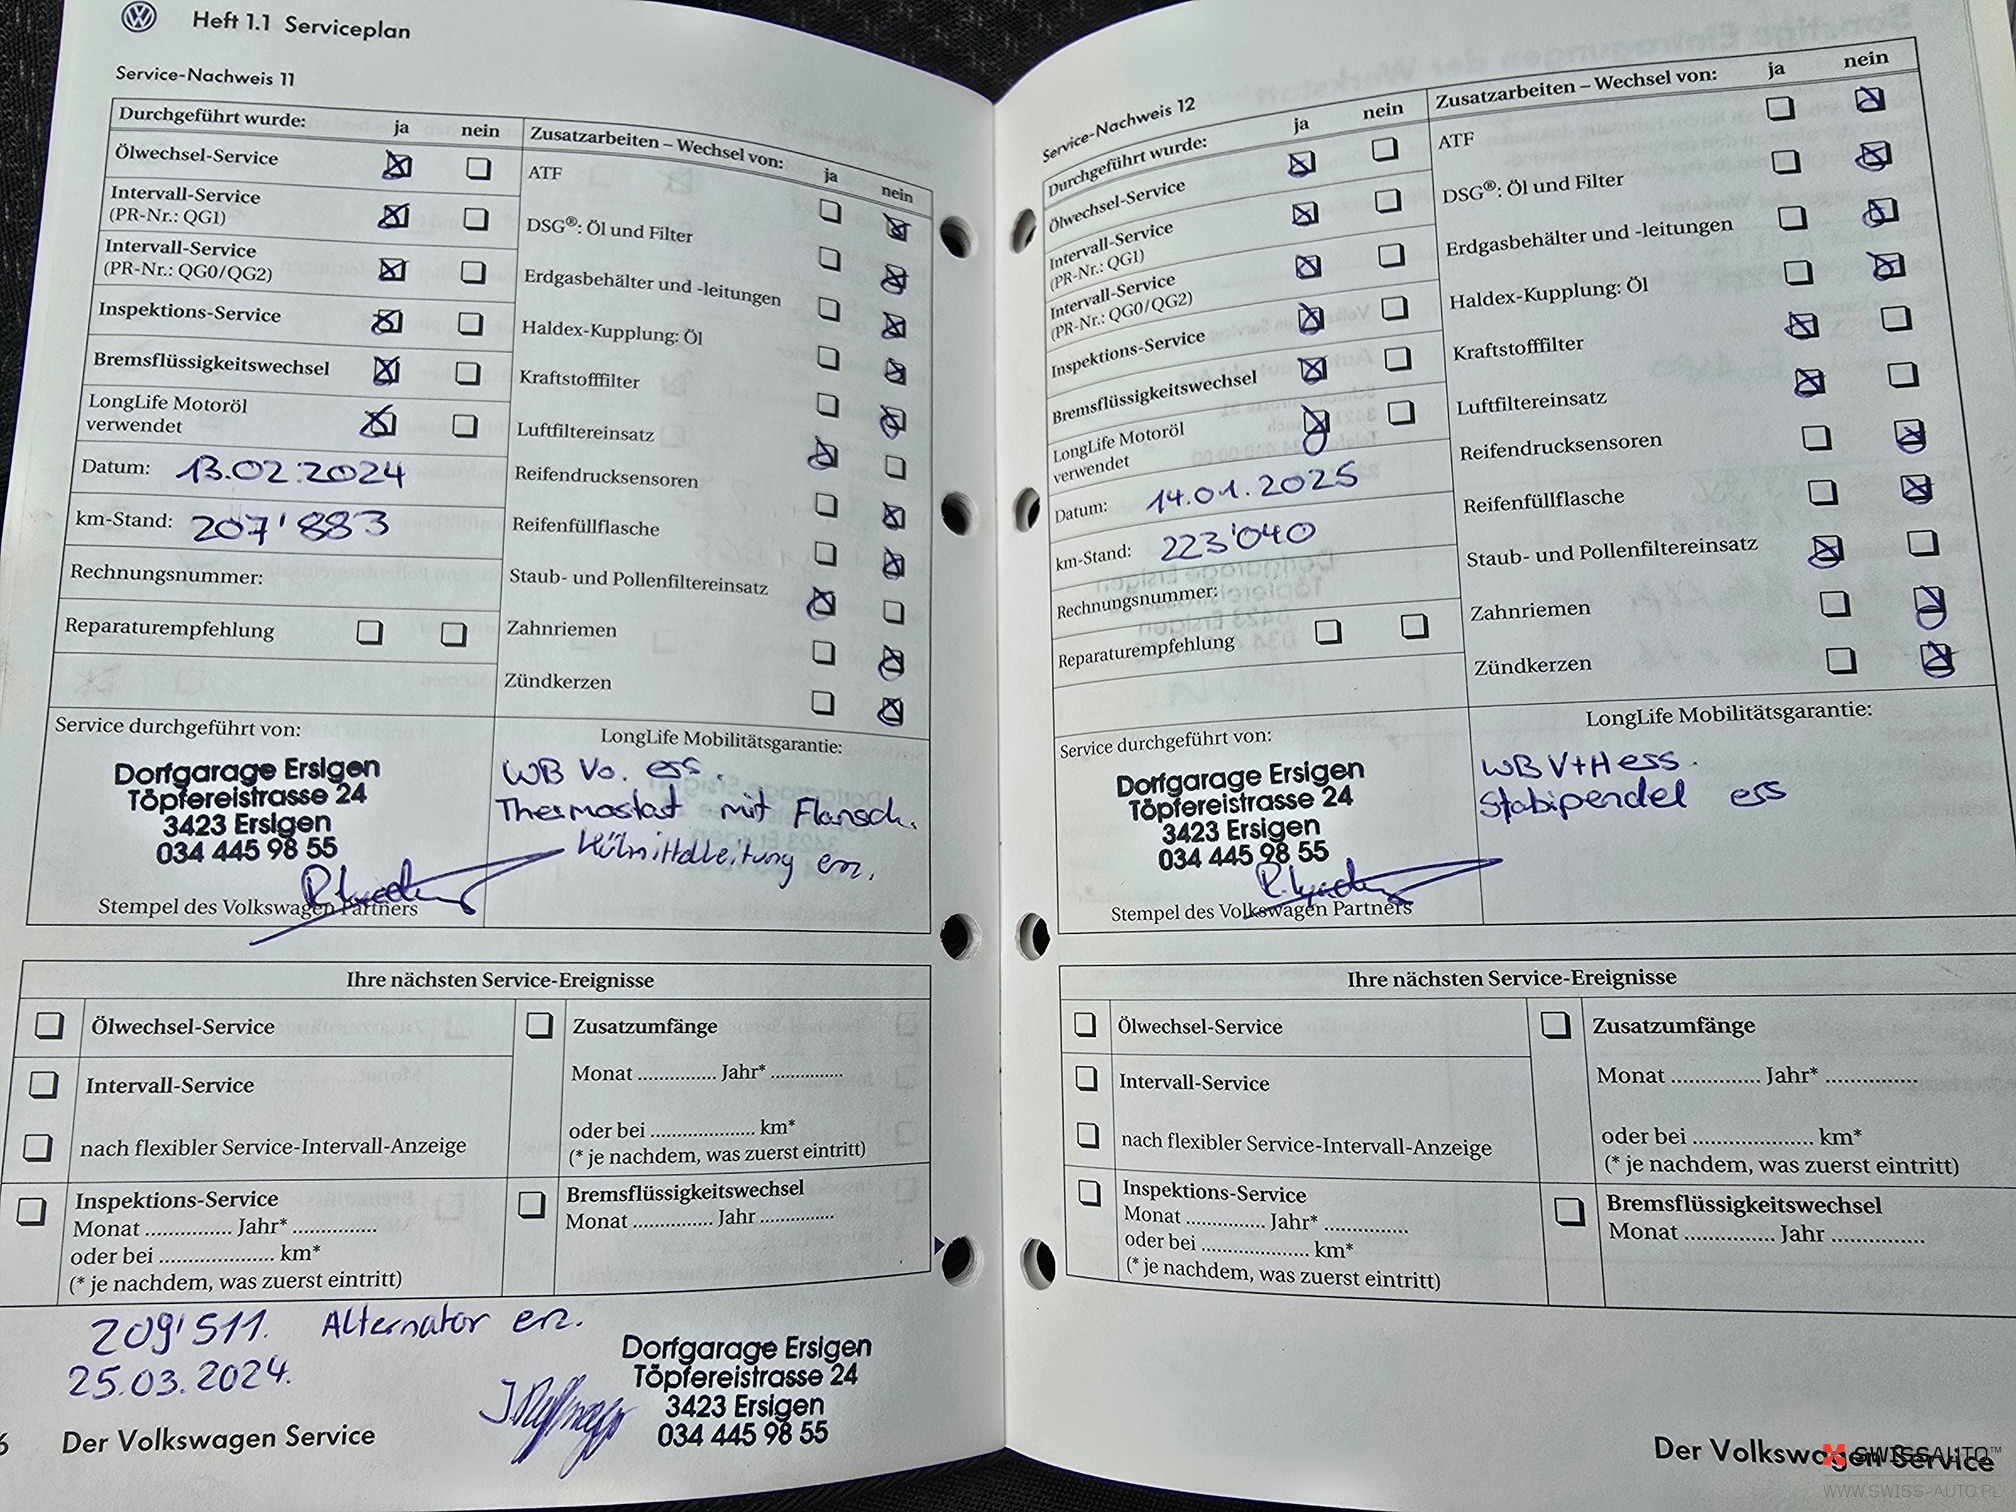 Heft 1.1 Serviceplan
Service-Nachweis 11
Durchgeführt wurde: ja nein
Ölwechsel-Service
Intervall-Service
(PR-Nr.: QG1)
Intervall-Service
(PR-Nr.: QG0/QG2)
Inspektions-Service
Bremsflüssigkeitswechsel
LongLife Motoröl
verwendet
Datum: 13.02.2024
km-Stand: 207'883
Rechnungsnummer:
Reparaturempfehlung
Zusatzarbeiten – Wechsel von: ja nein
ATF
DSG®: Öl und Filter
Erdgasbehälter und -leitungen
Haldex-Kupplung: Öl
Kraftstofffilter
Luftfiltereinsatz
Reifendrucksensoren
Reifenfüllflasche
Staub- und Pollenfiltereinsatz
Zahnriemen
Zündkerzen
Service durchgeführt von:
Dorfgarage Ersigen
Töpfereistrasse 24
3423 Ersigen
034 445 98 55
Stempel des Volkswagen Partners
LongLife Mobilitätsgarantie:
WB Vo. ess.
Thermostat mit Flansch.
erz.
Ihre nächsten Service-Ereignisse
Ölwechsel-Service
Intervall-Service
nach flexibler Service-Intervall-Anzeige
Inspektions-Service
Monat ............... Jahr* ...............
oder bei .................... km*
(* je nachdem, was zuerst eintritt)
Zusatzumfänge
Monat .............. Jahr* .............
oder bei .................... km*
(* je nachdem, was zuerst eintritt)
Bremsflüssigkeitswechsel
Monat .............. Jahr .............
209'511. Alternator erz.
25.03.2024.
Dorfgarage Ersigen
Töpfereistrasse 24
3423 Ersigen
034 445 98 55
6 Der Volkswagen Service
Service-Nachweis 12
Durchgeführt wurde: ja nein
Ölwechsel-Service
Intervall-Service
(PR-Nr.: QG1)
Intervall-Service
(PR-Nr.: QG0/QG2)
Inspektions-Service
Bremsflüssigkeitswechsel
LongLife Motoröl
verwendet
Datum: 14.01.2025
km-Stand: 223'040
Rechnungsnummer:
Reparaturempfehlung
Zusatzarbeiten – Wechsel von: ja nein
ATF
DSG®: Öl und Filter
Erdgasbehälter und -leitungen
Haldex-Kupplung: Öl
Kraftstofffilter
Luftfiltereinsatz
Reifendrucksensoren
Reifenfüllflasche
Staub- und Pollenfiltereinsatz
Zahnriemen
Zündkerzen
Service durchgeführt von:
Dorfgarage Ersigen
Töpfereistrasse 24
3423 Ersigen
034 445 98 55
Stempel des Volkswagen Partners
LongLife Mobilitätsgarantie:
WB V+H ess.
Stabipendel ess
Ihre nächsten Service-Ereignisse
Ölwechsel-Service
Intervall-Service
nach flexibler Service-Intervall-Anzeige
Inspektions-Service
Monat .............. Jahr* ...............
oder bei .................... km*
(* je nachdem, was zuerst eintritt)
Zusatzumfänge
Monat ................ Jahr* ................
oder bei ...................... km*
(* je nachdem, was zuerst eintritt)
Bremsflüssigkeitswechsel
Monat ................ Jahr ................
Der Volkswagen Service
SWISSAUTO™
WWW.SWISS-AUTO.PL